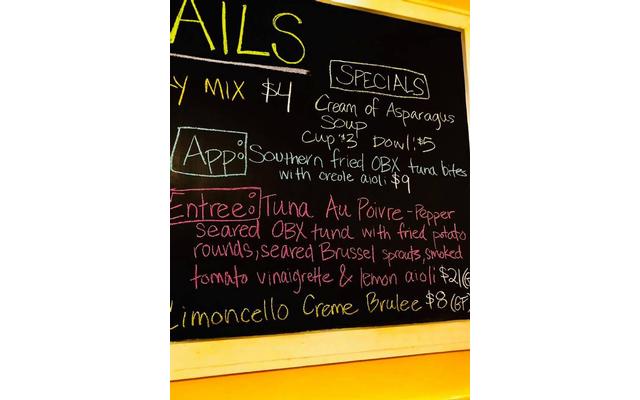 AILS
Y MIX $4
SPECIALS
Cream of Asparagus
Soup
Cup $3 Bowl: $5
App: Southern fried OBX tuna bites
with creole aioli $9
Entree: Tuna Au Poivre - Pepper
seared OBX tuna with fried potato
rounds, seared Brussel sprouts, smoked
tomato vinaigrette & lemon aioli $21(G
Limoncello Creme Brulee $8 (GF)